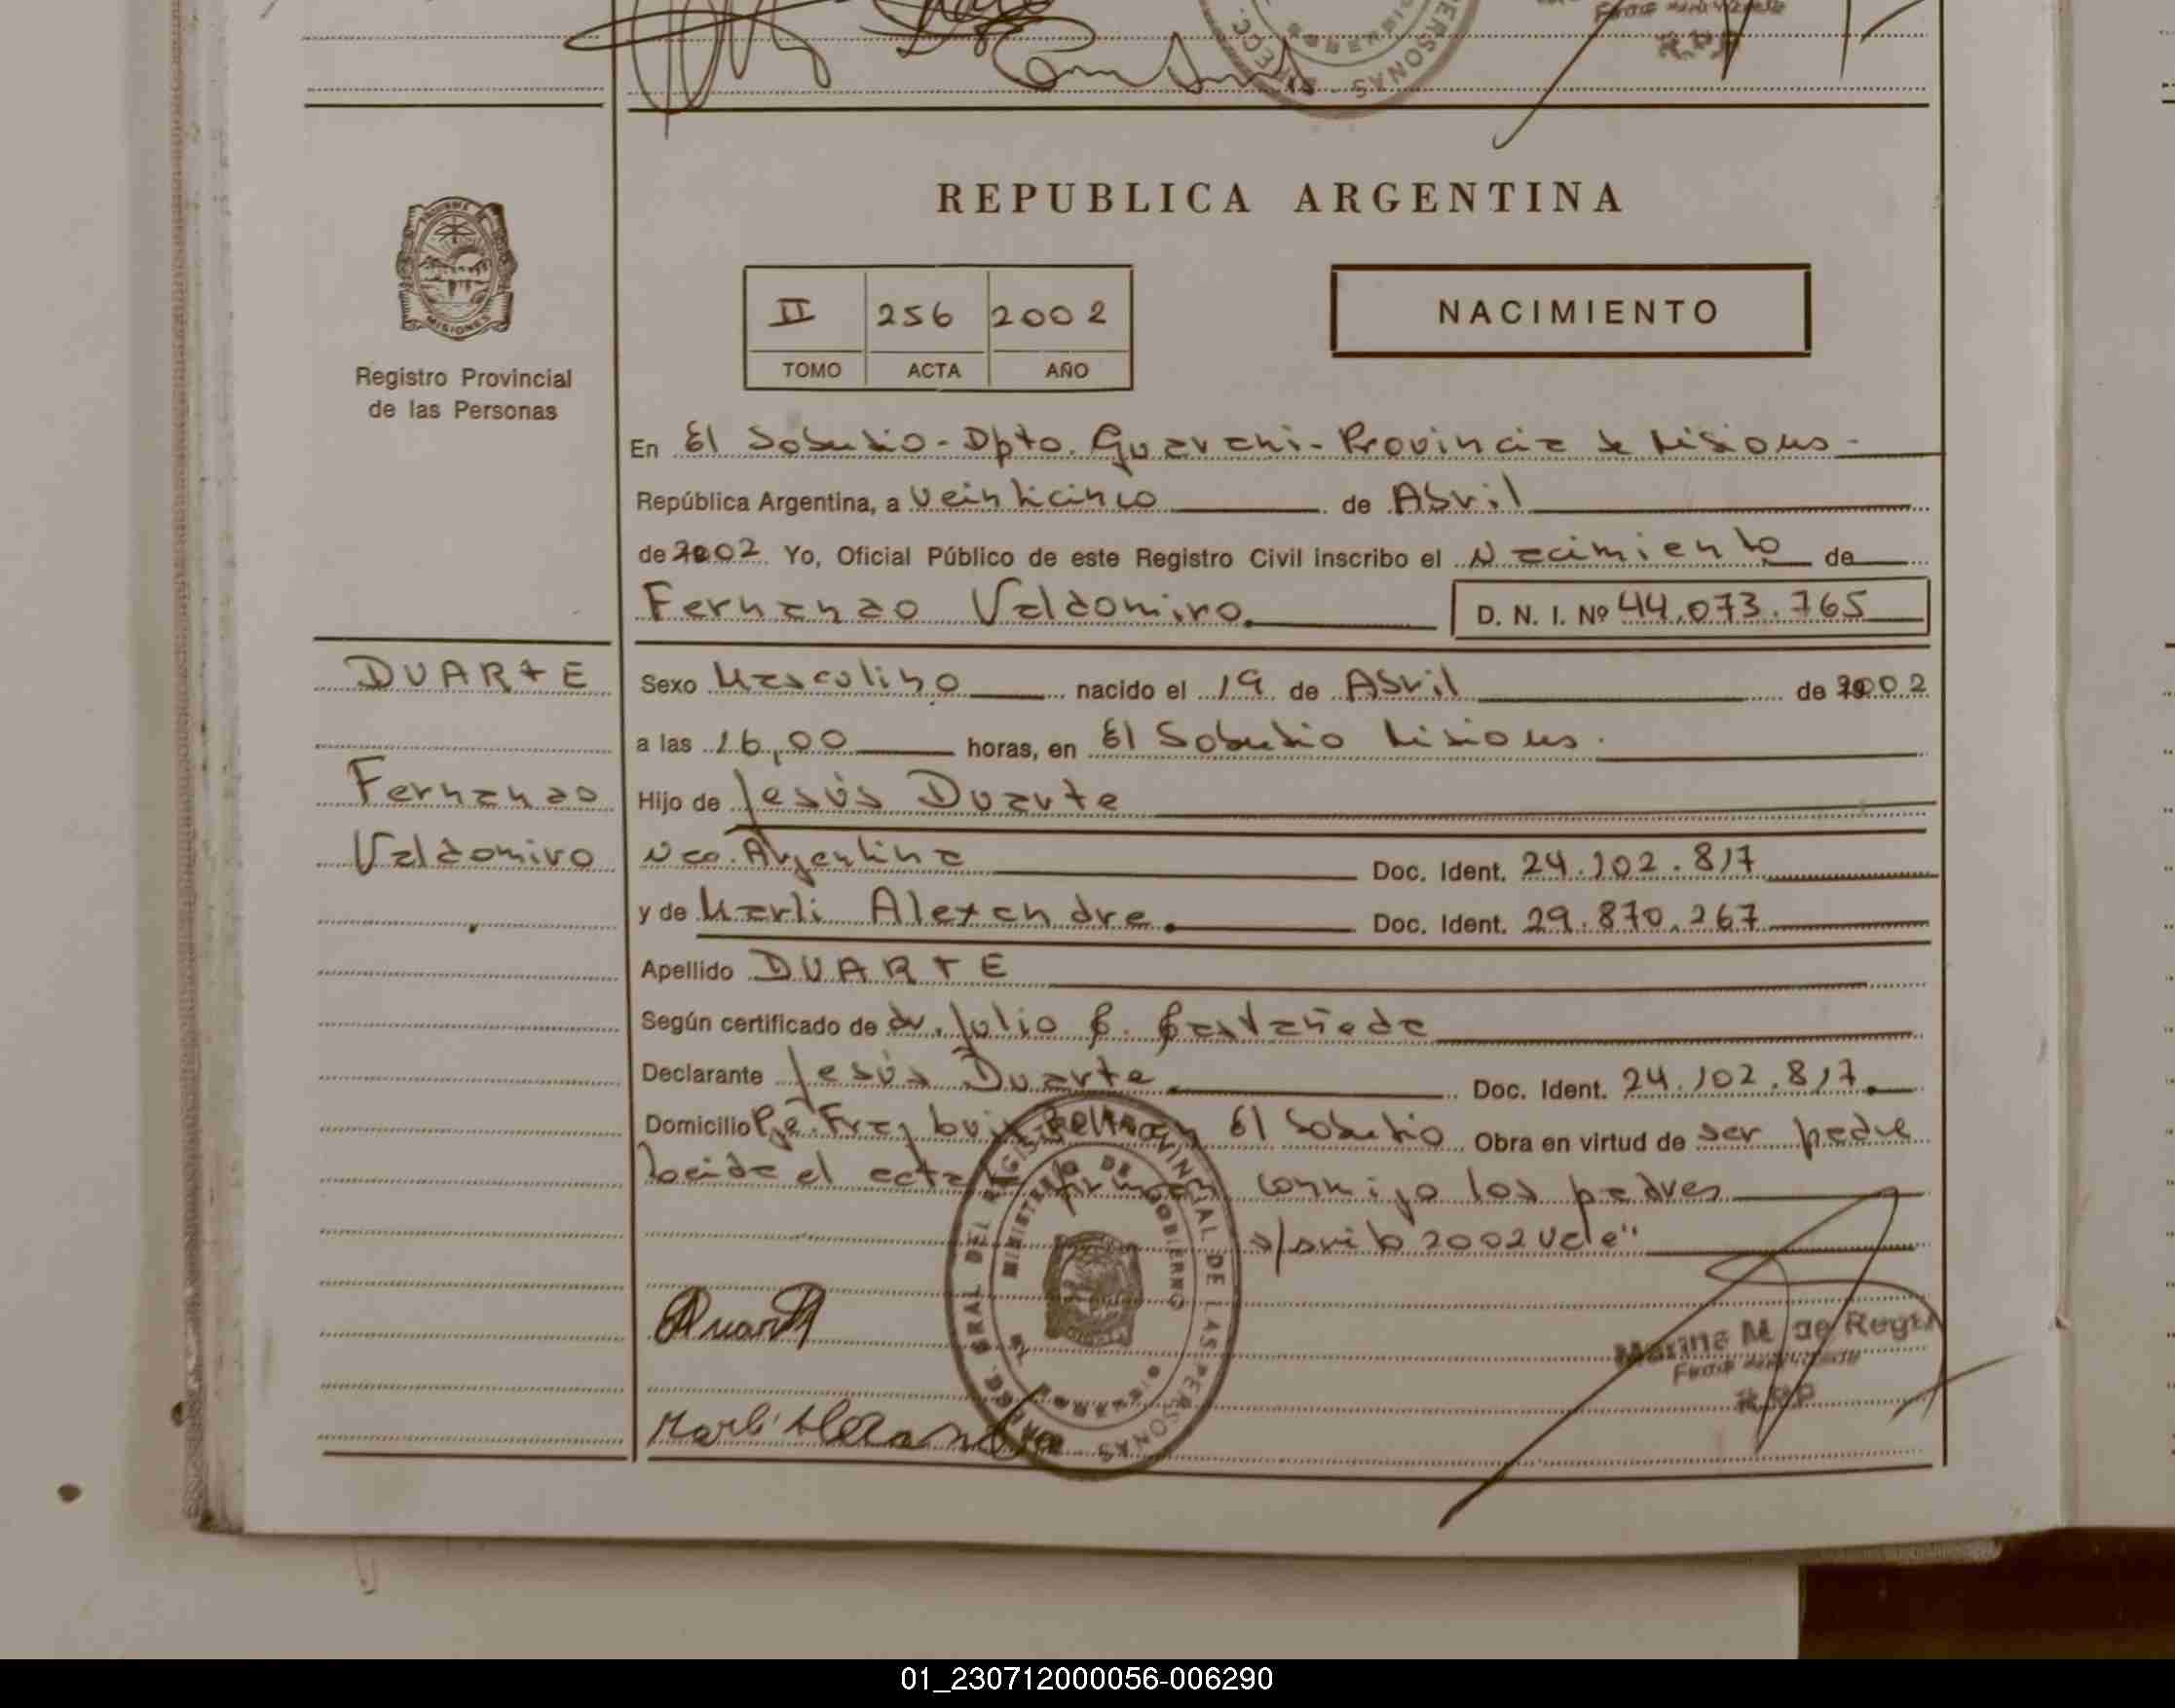 REPUBLICA ARGENTINA
MISIONES
Registro Provincial
de las Personas
II 256 2002
TOMO ACTA AÑO
NACIMIENTO
En El Soberbio - Dpto. Guarani - Provincia de Misiones -
República Argentina, a veinticinco de Abril
de 2002 Yo, Oficial Público de este Registro Civil inscribo el Nacimiento de
Fernando Valdomiro. D. N. I. Nº 44.073.765
DUARTE
Sexo Masculino nacido el 19 de Abril de 2002
a las 16,00 horas, en El Soberbio Misiones.
Fernando
Hijo de Jesús Duarte
Valdomiro
Nco. Argentina Doc. Ident. 24.102.817
y de Marli Alexandre. Doc. Ident. 29.870.267
Apellido DUARTE
Según certificado de dr. Julio C. Castañeda
Declarante Jesús Duarte. Doc. Ident. 24.102.817.
Domicilio Pje. Fray Luis Beltran El Soberbio Obra en virtud de ser padre
Leida el acta firman conmigo los padres
s/arrib 2002 vale"
Duarte
Marina M. de Reyes
R.P.P
Marli Alexandre
DIRECC. GRAL DEL REGISTRO PROVINCIAL DE LAS PERSONAS
MINISTERIO DE GOBIERNO
01_230712000056-006290